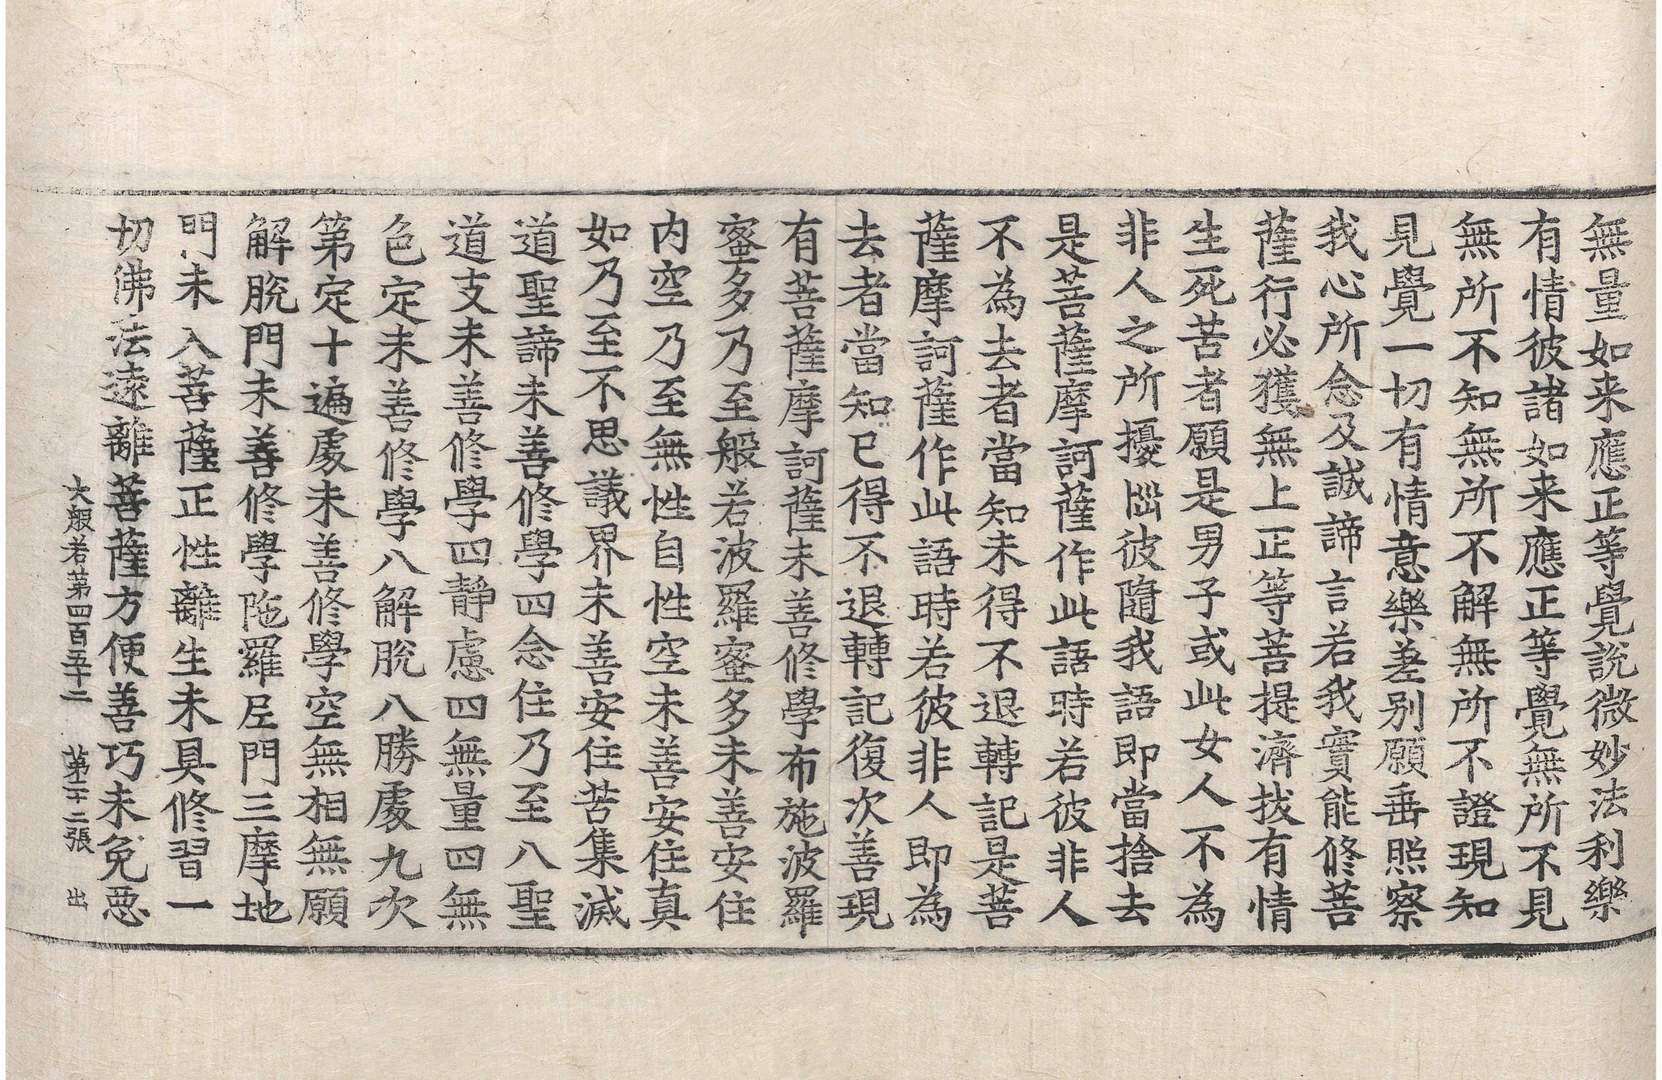 無量如来應正等覺說微妙法利樂
有情彼諸如来應正等覺無所不見
無所不知無所不解無所不證現知
見覺一切有情意樂差别願垂照察
我心所念及誠諦言若我實能修菩
薩行必獲無上正等菩提濟拔有情
生死苦者願是男子或此女人不為
非人之所擾惱彼隨我語即當捨去
是菩薩摩訶薩作此語時若彼非人
不為去者當知未得不退轉記是菩
薩摩訶薩作此語時若彼非人即為
去者當知已得不退轉記復次善現
有菩薩摩訶薩未善修學布施波羅
蜜多乃至般若波羅蜜多未善安住
内空乃至無性自性空未善安住真
如乃至不思議界未善安住苦集滅
道聖諦未善修學四念住乃至八聖
道支未善修學四靜慮四無量四無
色定未善修學八解脫八勝處九次
第定十遍處未善修學空無相無願
解脫門未善修學陁羅尼門三摩地
門未入菩薩正性離生未具修習一
切佛法遠離菩薩方便善巧未免惡
大般若第四百五十二 第二十二張 出